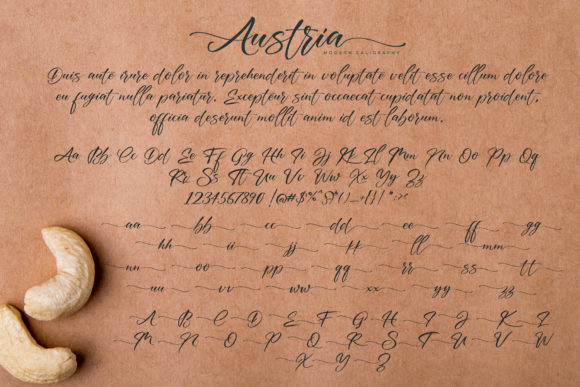 Austria
MODERN CALIGRAPHY
Duis aute irure dolor in reprehenderit in voluptate velit esse cillum dolore
eu fugiat nulla pariatur. Excepteur sint occaecat cupidatat non proident,
officia deserunt mollit anim id est laborum.
Aa Bb Cc Dd Ee Ff Gg Hh Ii Jj Kk Ll Mm Nn Oo Pp Qq
Rr Ss Tt Uu Vv Ww Xx Yy Zz
1234567890
aa bb cc dd ee ff gg
hh ii jj kk ll mm
nn oo pp qq rr ss tt
uu vv ww xx yy zz
A B C D E F G H I J K L
M N O P Q R S T U V W
X Y Z